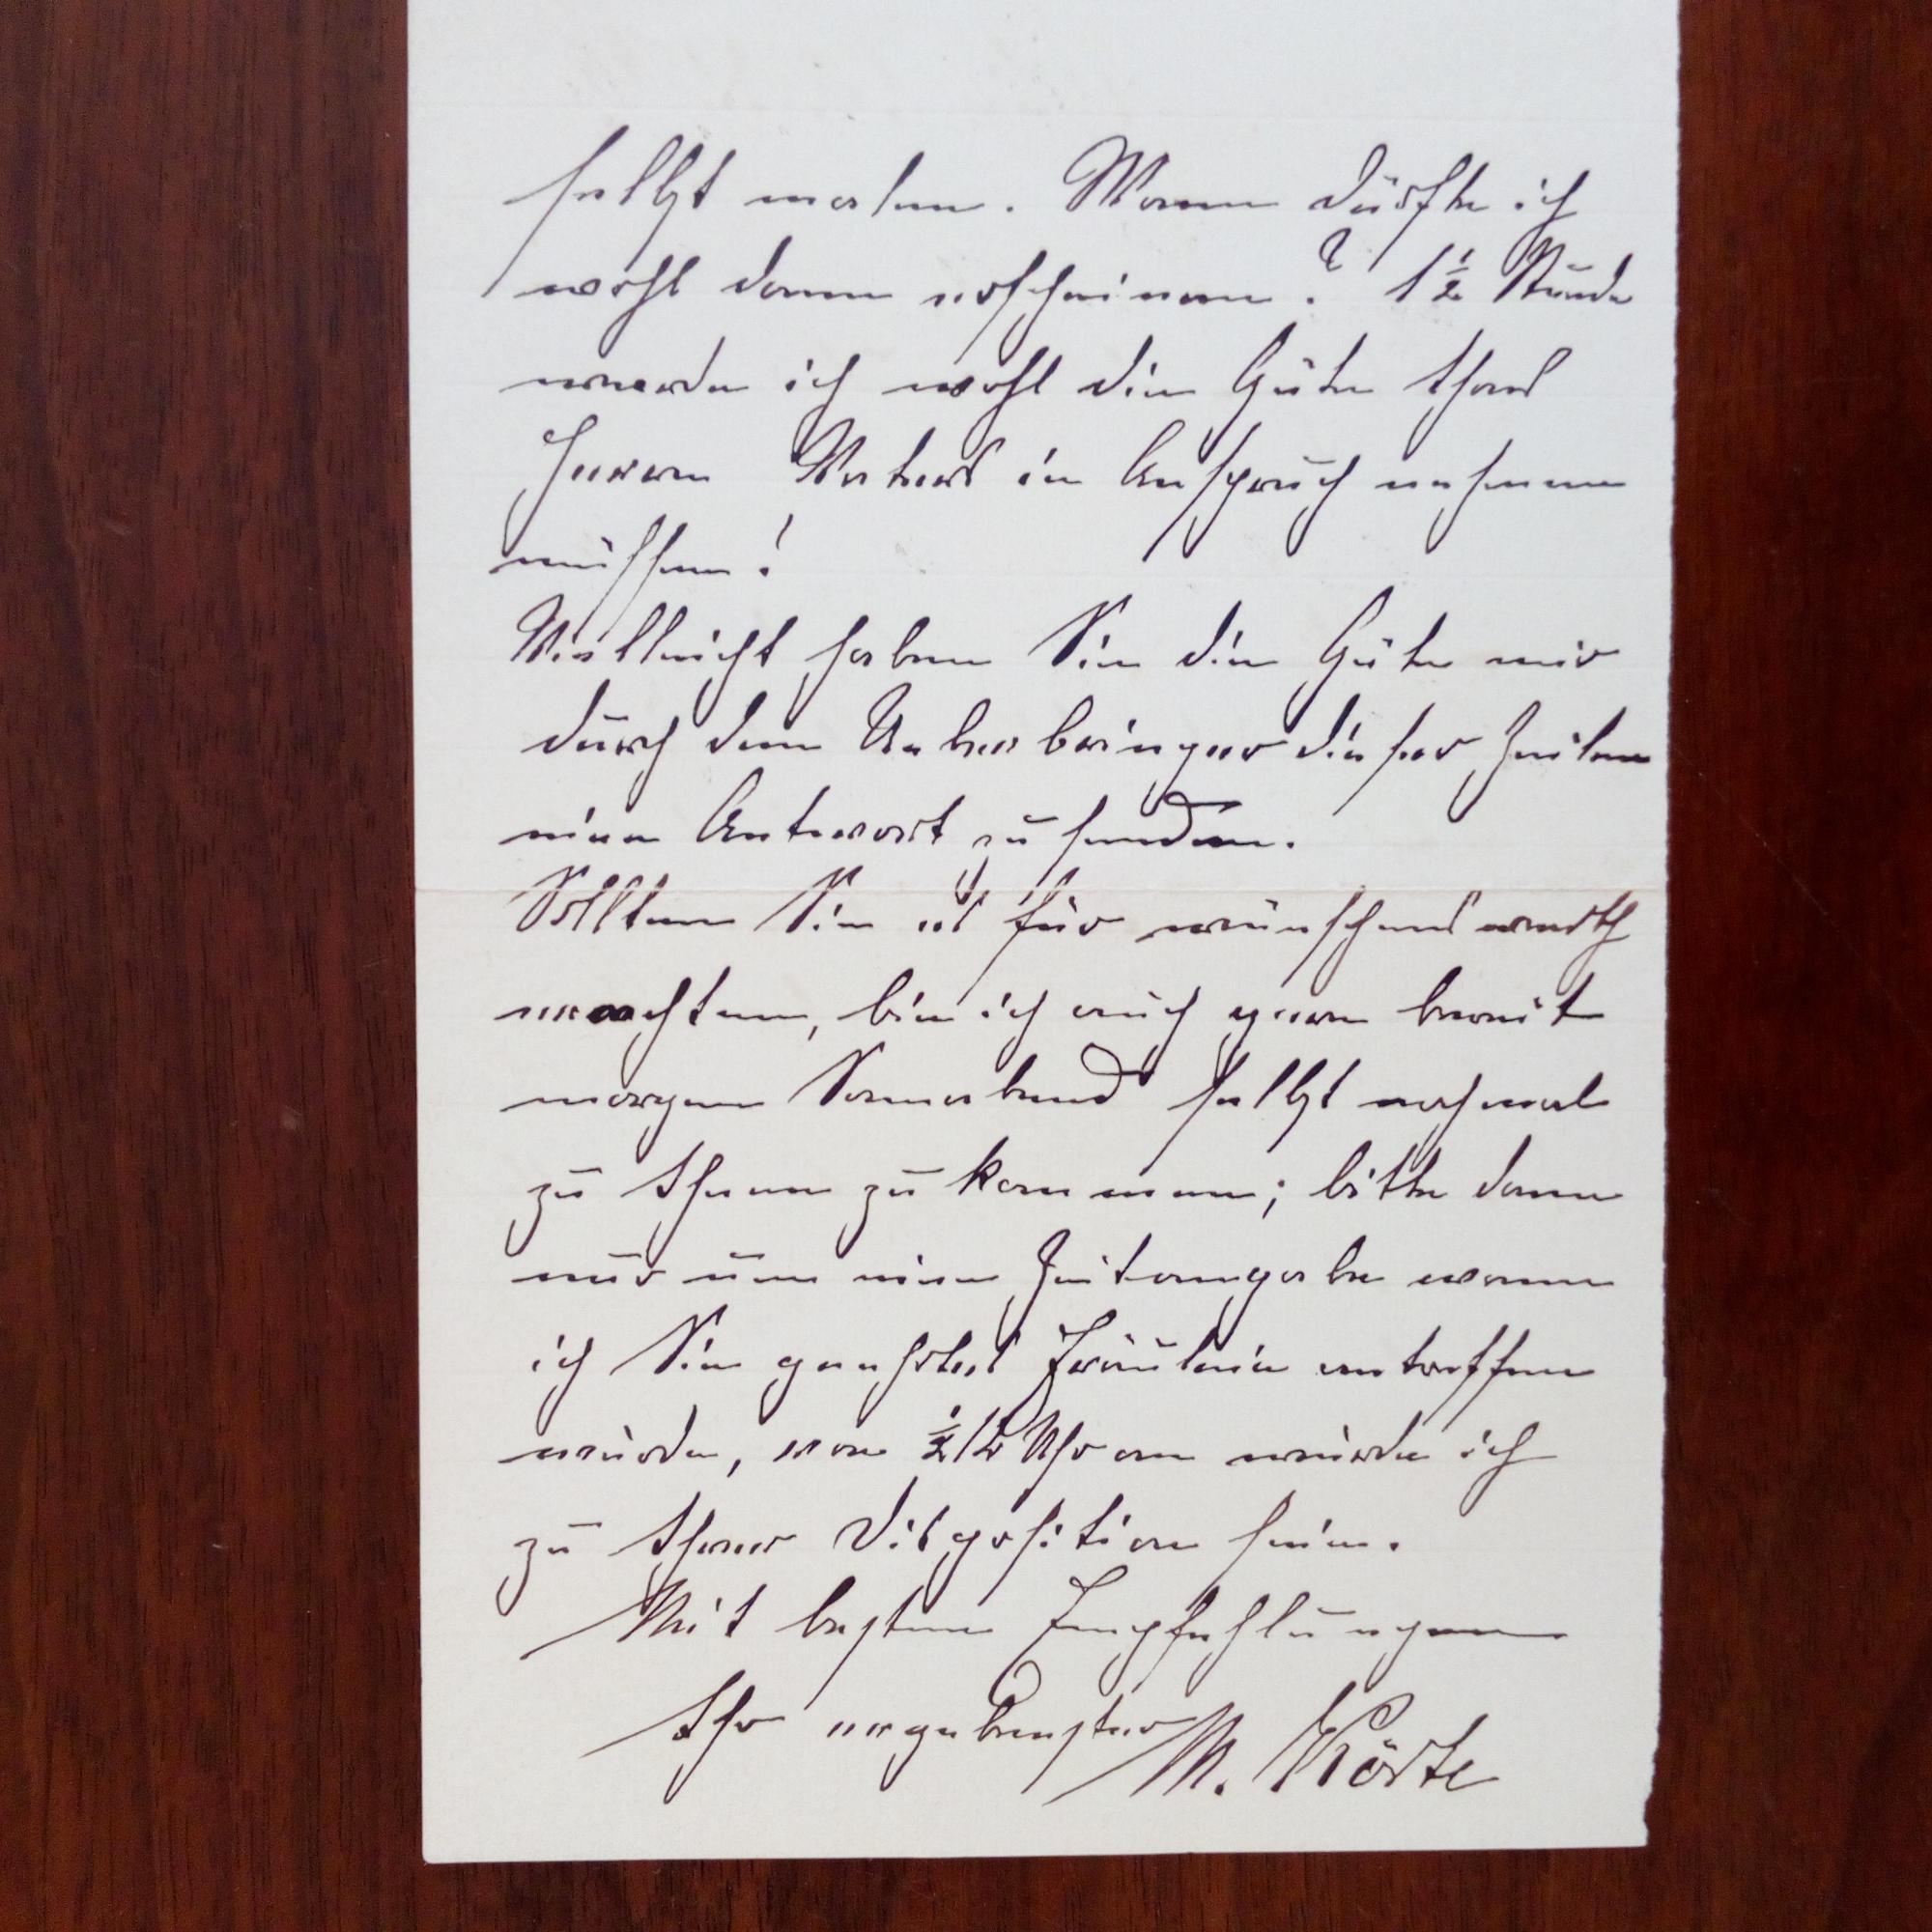 selbst malen. Wann dürfte ich
wohl dann erscheinen? 1½ Stunde
werde ich wohl die Güte Ihres
Herrn Vaters in Anspruch nehmen
müssen!
Vielleicht haben Sie die Güte mir
durch den Ueberbringer dieser Zeilen
eine Antwort zu senden.
Sollten Sie es für wünschenswerth
erachten, bin ich auch gern bereit
morgen Sonnabend selbst nochmal
zu Ihnen zu kommen; bitte dann
nur um eine Zeitangabe wann
ich Sie geehrtes Fräulein antreffen
würde, von ½12 Uhr an würde ich
zu Ihrer Disposition sein.
Mit besten Empfehlungen
Ihr ergebenster M. Körte